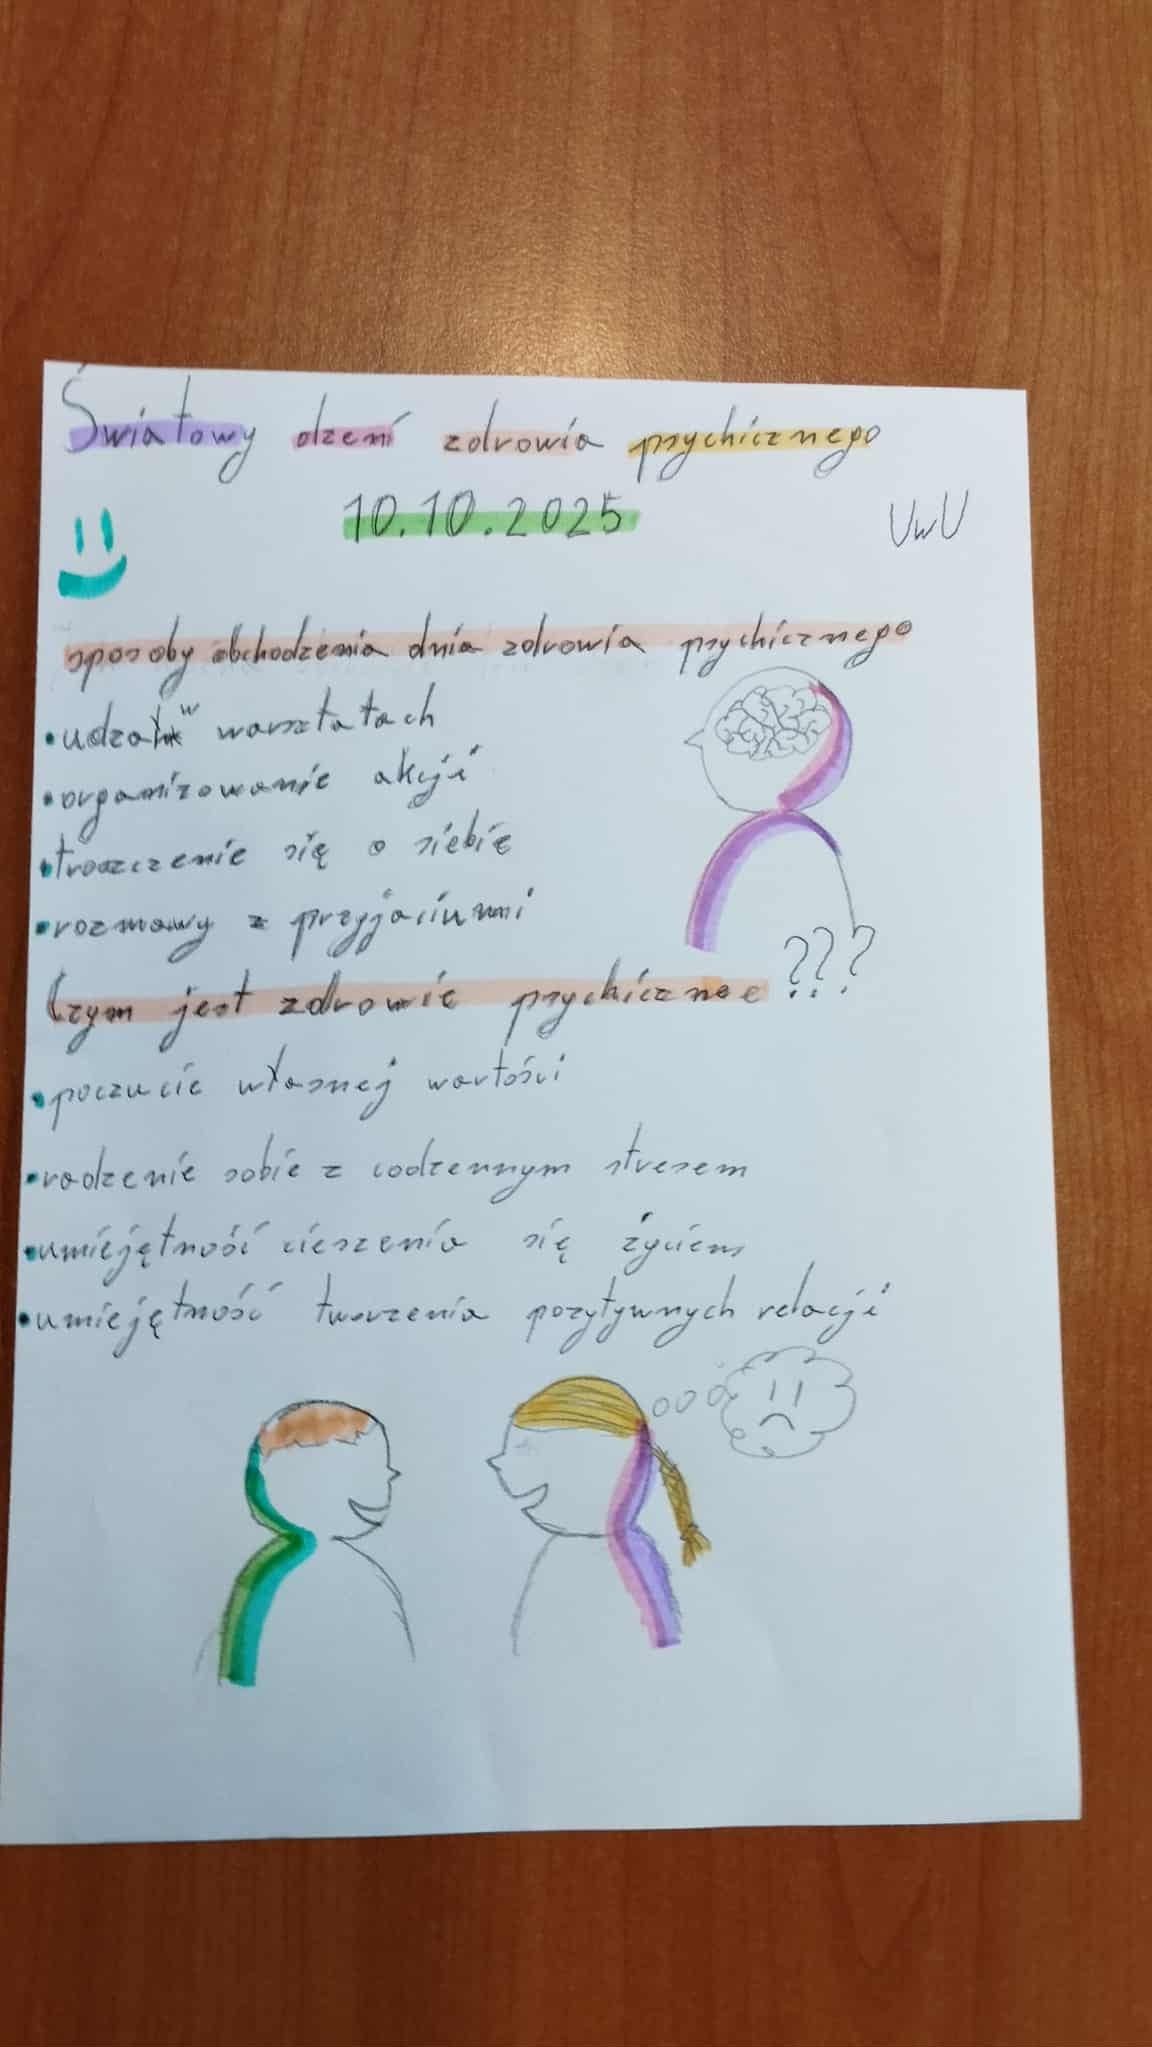 Światowy dzień zdrowia psychicznego
10.10.2025
UwU
sposoby obchodzenia dnia zdrowia psychicznego
• udział w warsztatach
• organizowanie akcji
• troszczenie się o siebie
• rozmowy z przyjaciumi
Czym jest zdrowie psychiczne ???
• poczucie własnej wartości
• radzenie sobie z codzennym stresem
• umiejętność cieszenia się życiem
• umiejętność tworzenia pozytywnych relacji